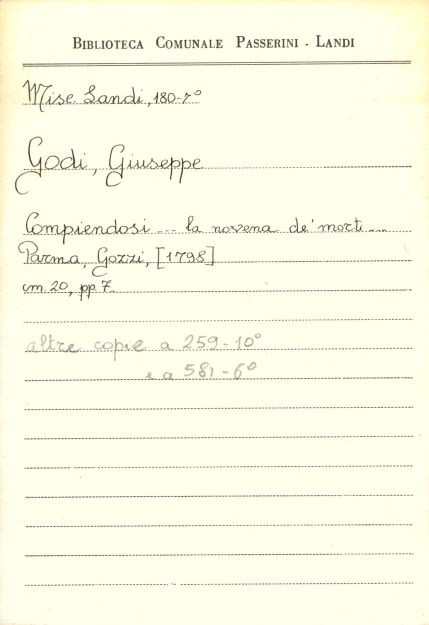 BIBLIOTECA COMUNALE PASSERINI - LANDI
Misc. Landi, 180-7°
Godi, Giuseppe
Compiendosi ... la novena de' morti ...
Parma, Gozzi, [1798]
cm. 20, pp. 7.
altre copie a 259-10°
e a 581-6°